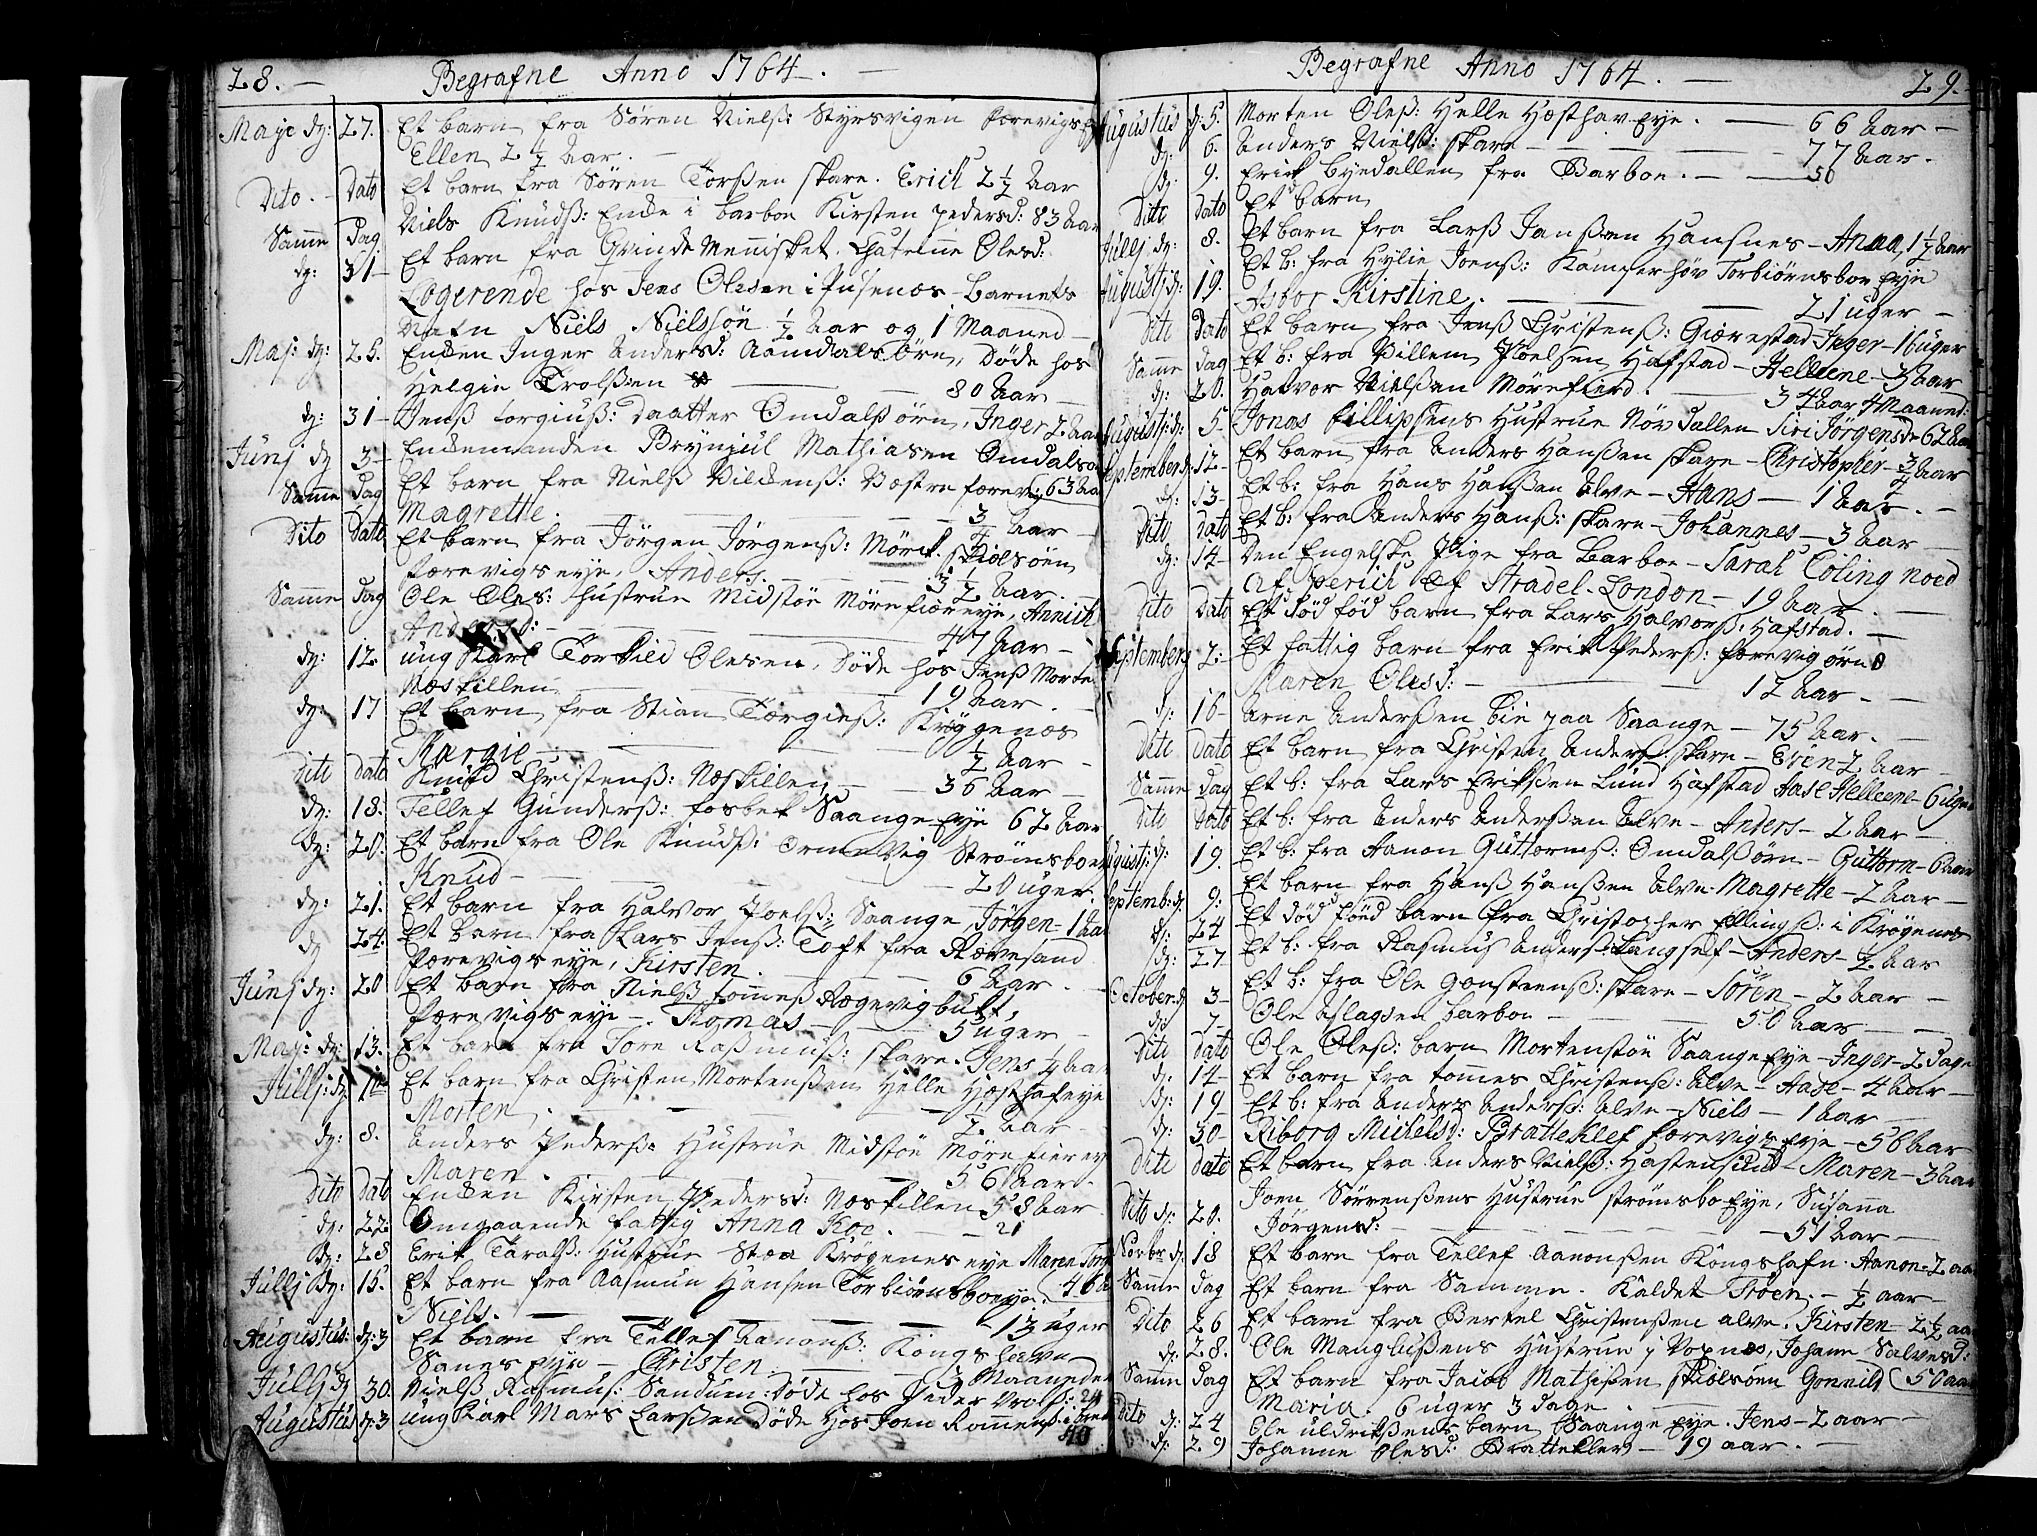 28. — Begrafne Anno 1764. —
Maje dÿ: 27. Et barn fra Sören Nielß: Styrsvigen færevigs
Ellen 2 1/2 Aar. —
Dito. — Dato Et barn fra Sören Torßen skare. Erich 2 1/2 Aar
Samme Dag Niels Knudß: Enke i barboe Kirsten Pedersd: 83 Aar
dÿ: 31 — Et barn fra Qvinde Mennisket Chatrine Olesd:
Logerende hos Jens Olesen i Pusenæs — Barnets
Nafn Niels Nielssön 1/2 Aar og 1 Maaned —
Maj: dÿ: 25. Enken Inger Andersd: Aamdals örn, Döde hos
Helgie Trolßen — 80 Aar —
dÿ: 31 — Jenß torgiuß: daatter Omdalß örn, Inger 2 Aar
Junj dÿ 3 — Enkemanden Brynjul Mathiasen Omdalsö
63 Aar
Samme Dag Et barn fra Nielß Vildenß: Væstre færevig
Magrette. — 3/4 Aar —
Dito Dato Et barn fra Jörgen Jörgenß: Mörch. Skiolsöen
færevigs eye, Anders. — 3 1/2 Aar. —
Samme Dag Ole Oles: hustrue Midstöe Mörefiær eye, Annich
Andersd: — 47 Aar —
dÿ: 12. ung Karl Torkild Olesen, Döde hos Jenß Morte
Næskillen — 19 Aar. —
dÿ: 17 Et barn fra Stian Torgieß: Kröggenæs
Margie — 1/2 Aar —
Dito dato Knud Christenß: Næskillen — 36 Aar —
dÿ: 18. Tellef Gunderß: fosbek Saange Eye 62 Aar
Dÿ: 20. Et barn fra Ole Knudß: Ormevig Strömsboe
Knud — 20 uger.
dÿ: 21. Et barn fra Halvor Poelß: Saange Jörgen — 1 Aar
dÿ 24. Et barn fra Lars Jenß: Toft fra Rævesand
færevigs eye, Kirsten. — 6 Aar. —
Junj dÿ: 20 Et barn fra Nielß tomeß Rægevig bugt,
Færevigs eye — Thomas — 5 uger —
Maj: dÿ: 13. Et barn fra Tore Rasmuß: skare. Jens 1/4 Aar
Julij: dÿ: Et barn fra Christen Mortenßen Helle Hæsthaf eye
Morten. — Aar —
dÿ: 8. Anders Pederß: Hustrue Midstöe Mörefier ey
Maren. — 56 Aar. —
Dito Dato Enken Kirsten Pedersd: Næskillen 58 Aar
dÿ: 22 Omgaaende fattig Anna Koe. — 21
Dÿ: 28 Erik Taralß: Hustrue Stoa Krögenes eye Maren Torg
46 Aar
Julij Dÿ: 15. Et barn fra Aasmun Hansen Torbiörnsboeeye.
Niels. — 13 uger
Augustus: dÿ: 3 Et barn fra Tellef Aanonß: Kongshavn
Sanes Eye — Christen — 3 Maaneder
Julij dÿ 30. Nielß Rasmus: Sandum: Döde hos Peder Vrolß: 24
Augustus dÿ. 3 ung Karl Mars Larßen Döde Hos Joen
40
Begrafne Anno 1764. — 29.
Augustus dÿ: 5. Morten Oleß: Helle Hæsthav Eye. — 66 Aar —
dÿ: 6. Anders Nielß: skare — 77 Aar. —
dÿ: 9. Erich byedallen fra Barboe. — 50
Dito Dato Et barn
Julij dÿ: 8. Et barn fra Larß Janßen Hansnes — Anna, 1 1/2 Aar
Augustj: dÿ: 19. Et b: fra Hylie Joenß: Kamperhöv Torbiörnsboe Eye
Asbor Kirstine. — 21 uger —
Dito Dato Et barn fra Jenß Christenß: Giærestad Inger — 16 uger
Samme dag Et b: fra Villem Poelsen Hafstad — Helleene — 3 Aar
dÿ: 20. Halvor Nielßen Mörefierd. — 34 Aar 4 Maaned:
Augustj: dÿ: 5. Jonas fillipßens Hustrue Növ dallen Siri Jörgensdr 62 Aar
September dÿ: 12 — Et barn fra Anders Hanßen skare — Christopher — 3/4 Aar
dÿ: 13 — Et b: fra Hans Hanßen Alve — Hans — 1 Aar. —
Dito Dato Et b: fra Anders Hanß: skare — Johannes — 3 Aar —
dÿ: 14 — Den Engelske Pige fra Barboe — Sarah Coling Noed
Af perich Of Stradel — London — 19 Aar. —
Dito Dato Et död föd barn fra Lars Halvorß: Hafstad. —
Septemberÿ 2: — Et fattig barn fra Erik Pederß: færevig örn
Maren Olesd: — 12 Aar. —
dÿ: 16 — Arne Anderßen bie paa Saange — 75 Aar. —
Dito Dato Et barn fra Christen Anders skare — Even 2 Aar —
Samme dag Et b: fra Lars Erikßen Lund Hafstad Aase Helleene — 6 uger
Dito Dato Et b: fra Anders Anderßen Alve — Anders — 2 Aar —
Augustj: dÿ: 19. Et b: fra Aanon Guttormß: Omdalsörn — Guttorm — 6 Aar
Septemb: dÿ. 9: Et barn fra Hanß Hanßen Alve — Magrette — 2 Aar —
dÿ: 24 Et död föed barn fra Christopher Ellingß: i Krögenes
dÿ: 27 — Et b: fra Rasmus Anders: Langself — Anders — 1/2 Aar
October dÿ 3 — Et b: fra Ole Gonstenß: skare — Sören — 2 Aar —
dÿ: 7 — Ole Aslagsen barboe — 50 Aar —
Dito Dato Ole Oleß: barn Mortenstöe Saange Eye — Inger — 2 dage
dÿ: 14 — Et barn fra tommes Christenß: Alve — Aase — 4 Aar —
dÿ: 19 — Et b: fra Anders Anderß: Alve — Niels — 1 Aar —
dÿ: 30 — Riborg Michelsd: Bratteklef færevigs Eye — 56 Aar
Dito Dato Et barn fra Anders Nielß: Hastensund — Maren — 3 Aar
Dito dÿ: 20. Joen Sörrenßens Hustrue strömsbo Eye, Susanna
Jörgensd: — 51 Aar —
Novbr dÿ: 18 Et barn fra Tellef Aanonßen Kongshafn. Aanon — 2 aar
Samme Dag Et barn fra Samme. Kaldet Tröen. — 1/2 aar —
Dito 26 Et barn fra Bertel Christenßen alve. Kirsten — 2 1/2 aar
dÿ. 28. Ole Manglußens Hustrue j Vopnæs, Johane Salvesd:
50 aar
Samme dag Et barn fra Jacob Mathisen Skiolsöen Gonnild
Maria. 6 uger 3 dage. —
Dito dÿ: 24 Ole uldrikßens barn Saange Eye. Jens — 2 aar —
dÿ. 29 Johanne Olesd: Bratteklev — 19 aar. —